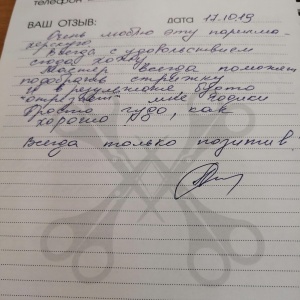 телефон
ВАШ ОТЗЫВ: дата 17.10.19
Очень люблю эту парикма-
херскую
Всегда с удовольствием
сюда хожу
Мастер всегда поможет
подобрать стрижку
и в результате будто
мне годики
Просто чудо, как
хорошо
Всегда только позитив.